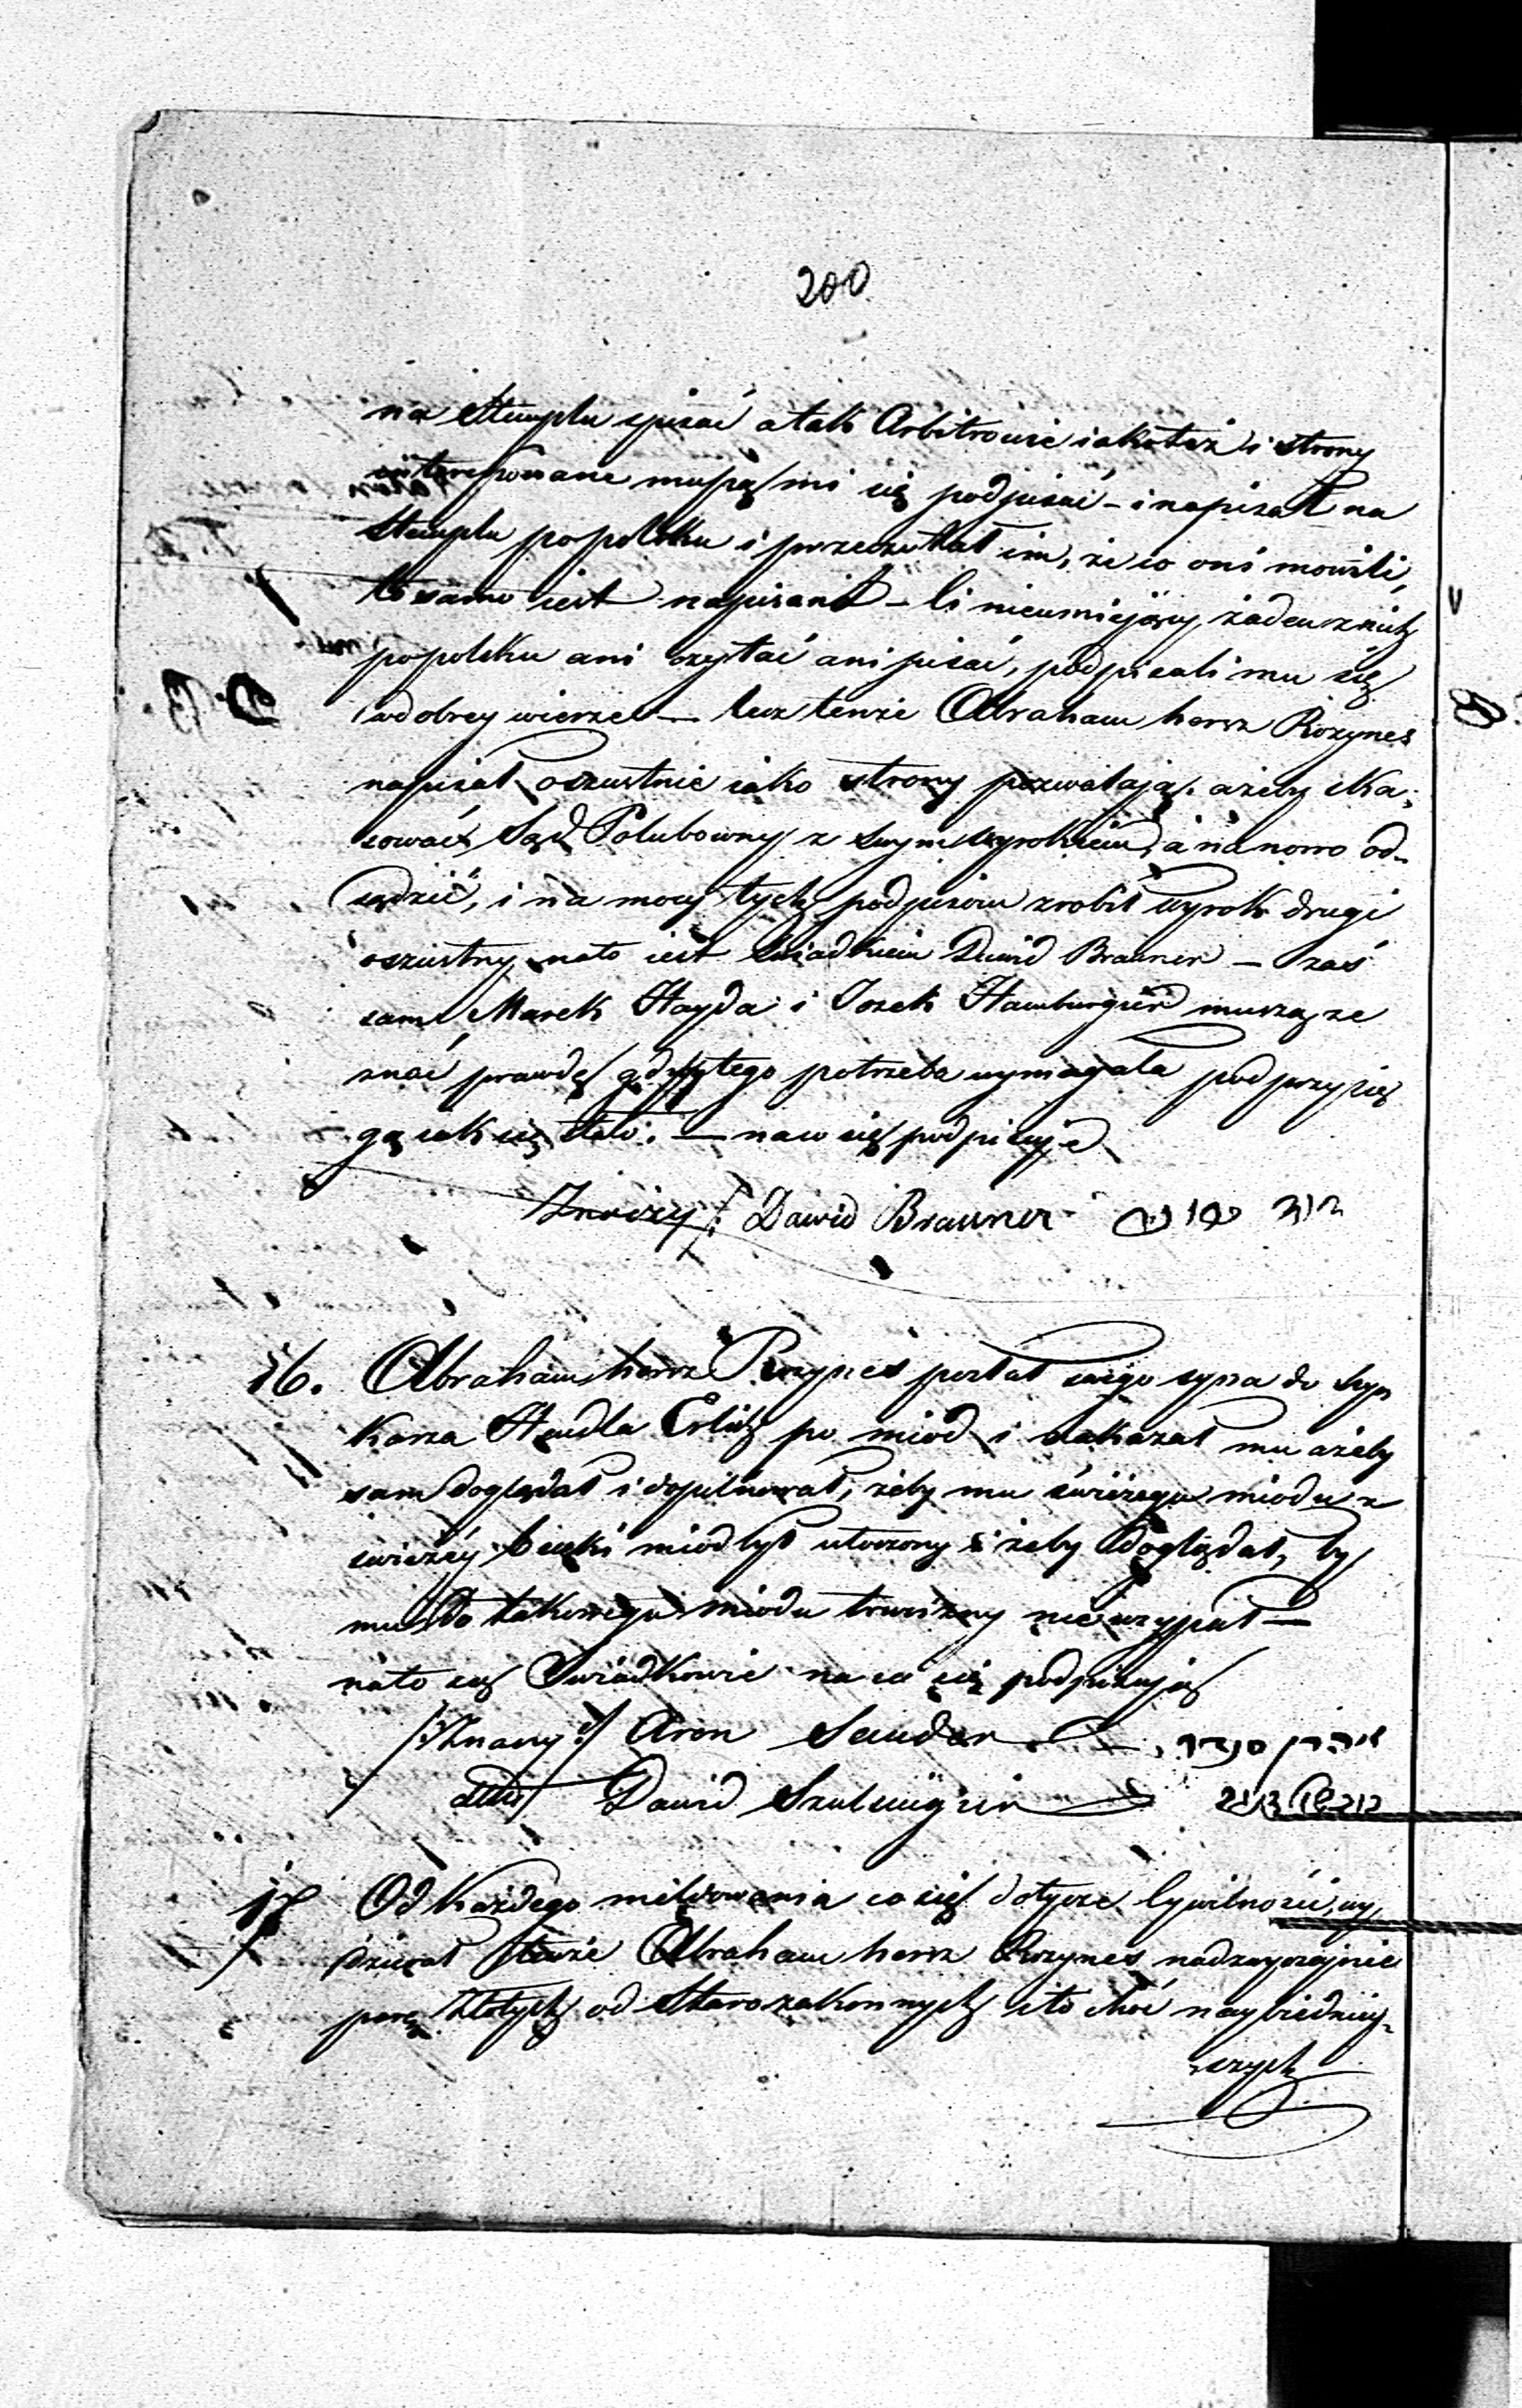 200
na stemplu spisać a tak Arbitrowie iakoteż i strony
interessowane muszą mi się podpisać – i napisał na
stemplu popolsku i przeczytał im, że co oni mowili,
to samo iest napisane – Ci nieumiejący żaden z nich
popolsku ani czytać ani pisać, podpisali mu się
w dobrey wierze – lecz tenże Abraham hersz Rozynes
napisał oszustnie iako strony pozwalają ażeby ska-
sować Sąd Polubowny z swym wyrokiem, a na nowo od-
sądzić, i na mocy tych podpisów zrobił wyrok drugi
oszustny na to iest świadkiem Dawid Brauner – zaś
sam Marek Hayda i Josek Hamburgier muszą ze
znać prawdę gdyby tego potrzeba wymagała pod przysię
gą iak się stało. – na co się podpisuje
Dawid Brauner
16. Abraham hersz Rozynes posłał swego syna do Szyn
karza Hendla Erlich po miód i nakazał mu ażeby
sam doglądał i dopilnował, żeby mu świeżego miodu z
świeżéy beczki miód był utoczony i żeby doglądał, by
mu do takowego miodu trucizny nie wsypał –
na to są Swiadkowie na co się podpisują
/:Znany:/ Aron Sender אהרן סנדר
ditto Dawid
17 Od każdego meldowania co się dotycze Cywilności, wy-
dzierał tenże Abraham hersz Rozynes nadzwyczajnie
parę złotych od Starozakonnych i to choć naybiedniey-
szych